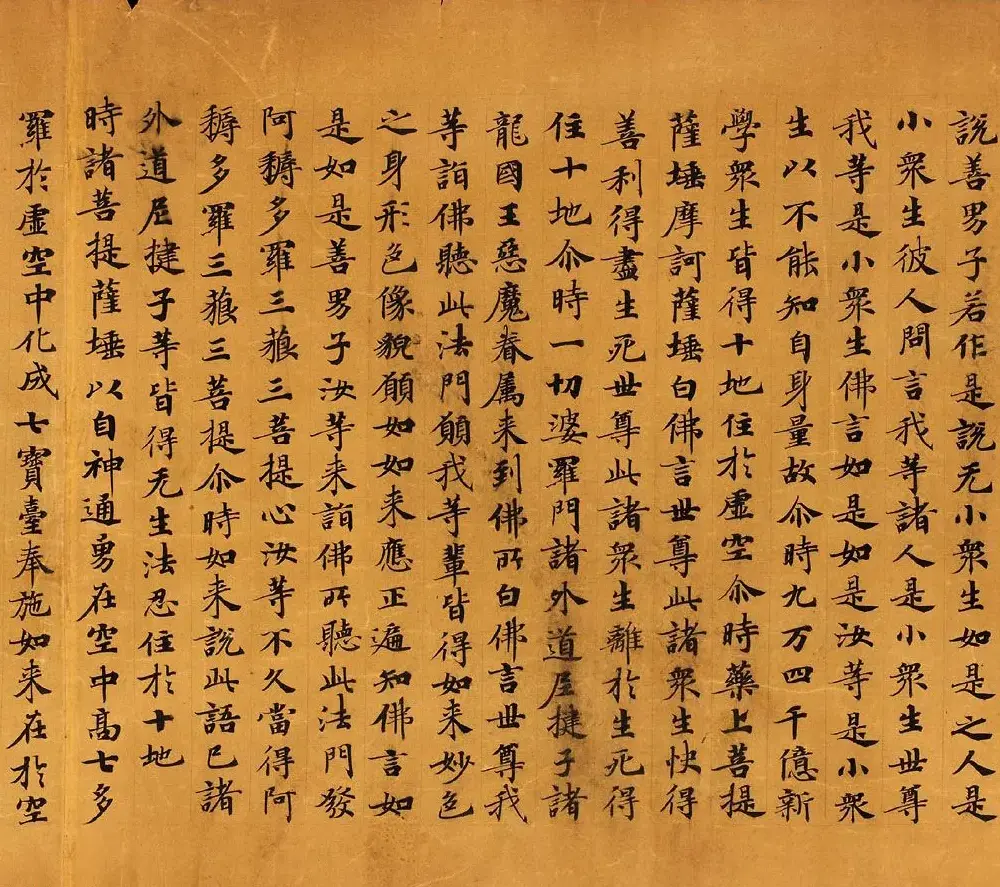 說善男子若作是說无小衆生如是之人是
小衆生彼人問言我等諸人是小衆生世尊
我等是小衆生佛言如是如是汝等是小衆
生以不能知自身量故尒時九万四千億新
學衆生皆得十地住於虛空尒時藥上菩提
薩埵摩訶薩埵白佛言世尊此諸衆生快得
善利得盡生死世尊此諸衆生離於生死得
住十地尒時一切婆羅門諸外道尼揵子諸
龍國王惡魔眷属来到佛所白佛言世尊我
等詣佛聽此法門願我等輩皆得如来妙色
之身形色像貌願如如来應正遍知佛言如
是如是善男子汝等来詣佛所聽此法門發
阿耨多羅三藐三菩提心汝等不久當得阿
耨多羅三藐三菩提尒時如来說此語已諸
外道尼揵子等皆得无生法忍住於十地
時諸菩提薩埵以自神通勇在空中高七多
羅於虛空中化成七寶臺奉施如来在於空